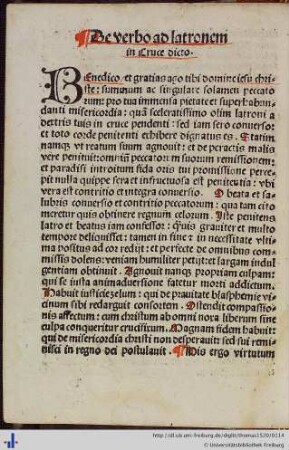 De verbo ad latronem
in Cruce dicto.
BEnedico et gratias ago tibi domine iesu chri-
ste: summum ac singulare solamen peccato
rum: pro tua immensa pietate et superhabun
danti misericordia: quā sceleratissimo olim latroni a
dextris tuis in cruce pendenti: sed iam sero converso:
et toto corde penitenti exhibere dignatus es. Statim
namqȝ vt reatum suum agnouit: et de peractis malis
vere penituit: omniū peccatorum suorum remissionem:
et paradisi introitum fida oris tui promissione perce-
pit nulla quippe sera et infructuosa est penitētia: vbi
vera est contritio et integra conuersio. O beata et sa-
lubris conuersio et contritio peccatorum: qua tam cito
meretur quis obtinere regnum celorum. Iste penitens
latro et beatus iam confessor: quīs grauiter et multo
tempore deliquisset: tamen in fine in necessitate vlti-
ma positus ad cor redijt: et perfecte de omnibus com-
missis dolens: veniam humiliter petijt: et largam indul
gentiam obtinuit. Agnouit namqȝ propriam culpam:
qui se iusta animaduersione fatetur morti addictum.
Habuit iusticie zelum: qui de prauitate blasphemie vi-
cinum sibi redarguit consortem. Ostendit compassio-
nis affectum: cum christum ab omni noxa liberum sine
culpa conqueritur crucifixum. Magnam fidem habuit:
qui de misericordia christi non desperauit: sed sui remi-
nisci in regno dei postulauit. His ergo virtutum
http://dl.ub.uni-freiburg.de/diglit/thomas1520/0114
© Universitätsbibliothek Freiburg